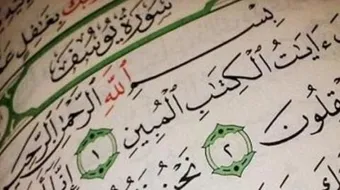 بِغَٰفِلٍ
سُورَةُ يُوسُفَ
بِسْمِ ٱللَّهِ ٱلرَّحْمَٰنِ ٱلرَّحِيمِ
ءَايَٰتُ ٱلْكِتَٰبِ ٱلْمُبِينِ ١ إِنَّآ
قِلُونَ ٢ نَحْنُ